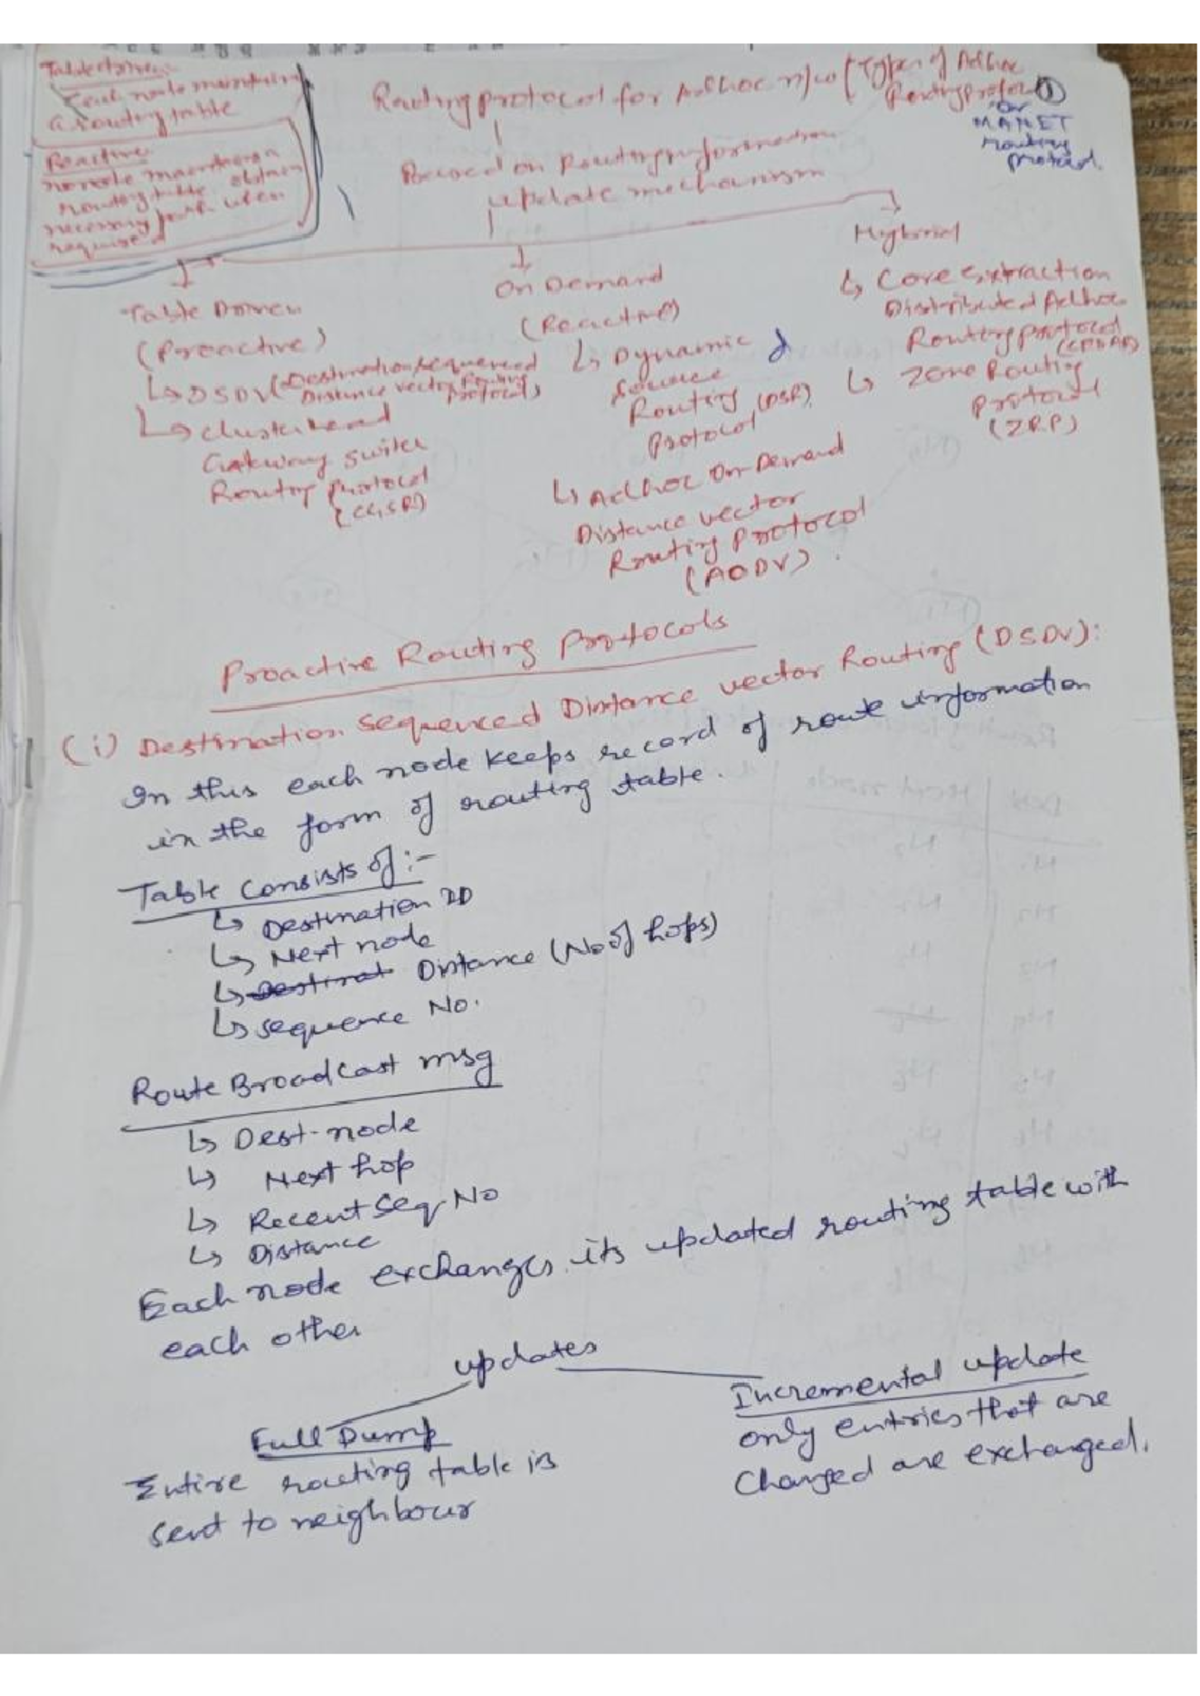 Table driven
each node maintain
a routing table
Reactive
no node maintain a
routing table obtain
necessary path when
required
Routing protocol for Adhoc n/w (Types of Adhoc
Routing protocol) 1
or
MANET
routing
protocol.
Based on Routing information
update mechanism
Table Driven
(Proactive)
↳ DSDV (Destination Sequenced
Distance vector Routing
Protocol)
↳ Cluster head
Gateway switch
Routing protocol
(CGSR)
On Demand
(Reactive)
↳ Dynamic
Source
Routing (DSR)
protocol
↳ Adhoc On-Demand
Distance vector
Routing Protocol
(AODV).
Hybrid
↳ Core Extraction
Distributed Adhoc
Routing protocol
↳ Zone Routing
protocol
(ZRP)
Proactive Routing Protocols
(i) Destination Sequenced Distance vector Routing (DSDV):
In this each node keeps record of route information
in the form of routing table.
Table consists of :-
↳ Destination ID
↳ Next node
↳ Destinat Distance (No of hops)
↳ sequence No.
Route Broadcast msg
↳ Dest-node
↳ Next hop
↳ Recent Seq-No
↳ Distance
Each node exchanges its updated routing table with
each other
updates
Full Dump
Entire routing table is
sent to neighbour
Incremental update
only entries that are
Changed are exchanged.